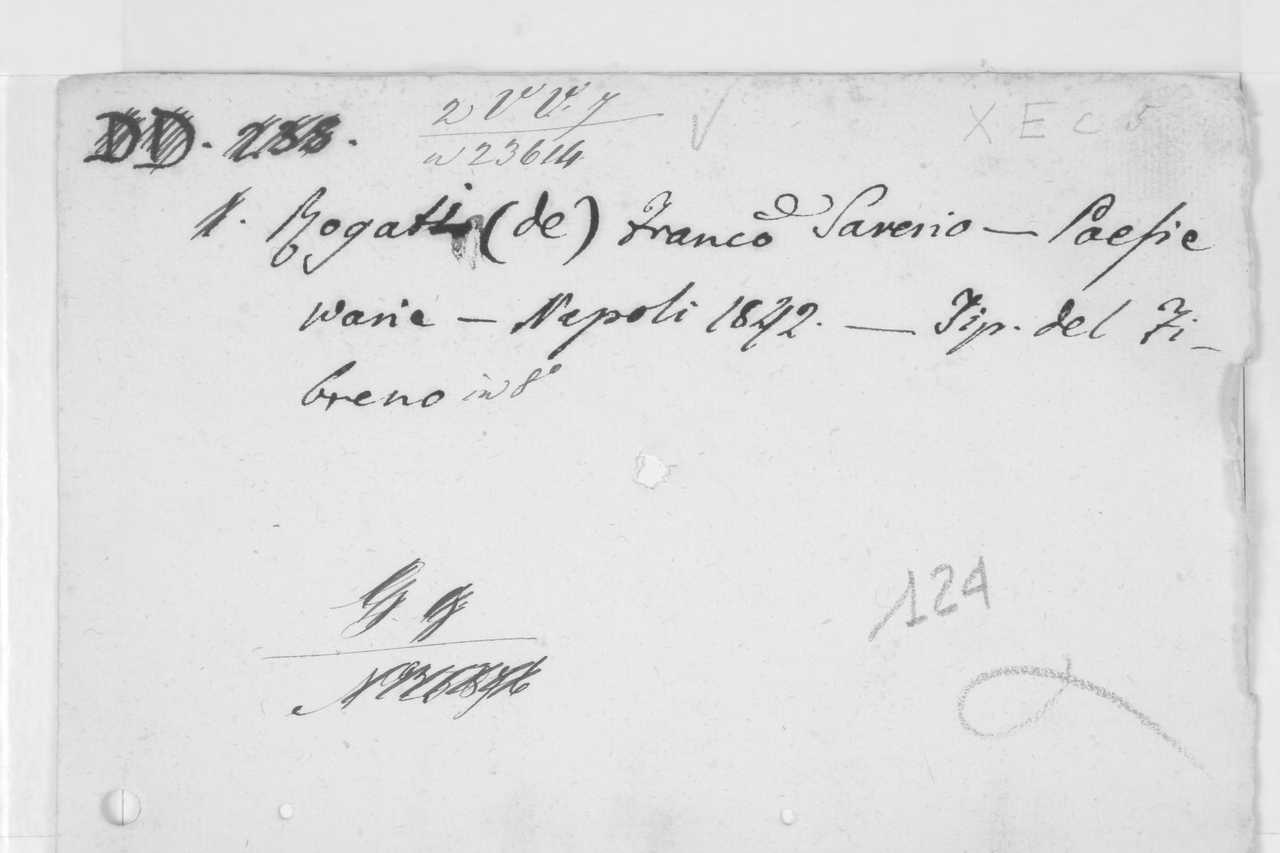 DD. 288.
2 V V. 7
n 23614
X E C 5
1. Rogatti (de) Franco Saverio — Poesie
varie — Napoli 1842. — Tip. del Fi-
breno in 8°
G. g
124